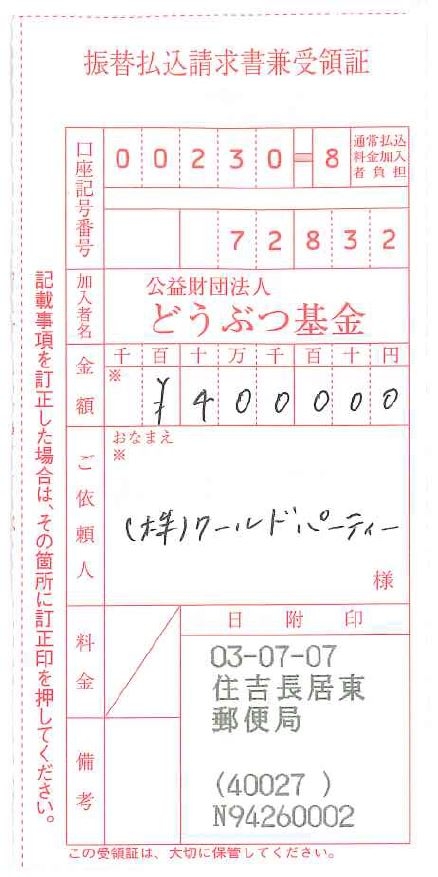 振替払込請求書兼受領証
口座記号番号
00230-8
通常払込
料金加入
者負担
72832
加入者名
公益財団法人
どうぶつ基金
金額
千百十万千百十円
※
¥400000
ご依頼人
おなまえ
※
(株)ワールドパーティー
様
料金
日附印
03-07-07
住吉長居東
郵便局
(40027 )
N94260002
備考
記載事項を訂正した場合は、その箇所に訂正印を押してください。
この受領証は、大切に保管してください。